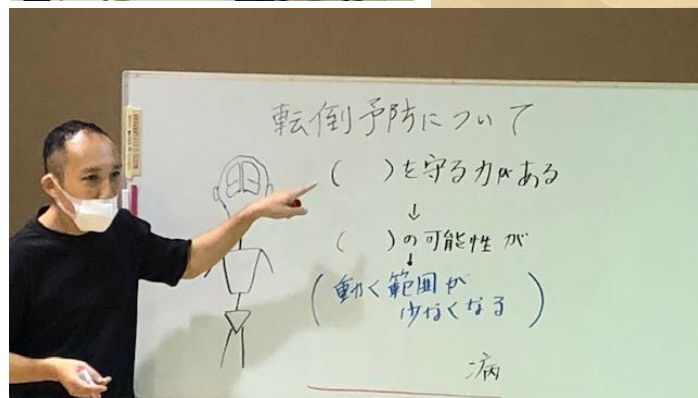 転倒予防について
(　)を守る力がある
↓
(　)の可能性が
↓
(動く範囲が
少なくなる)
病